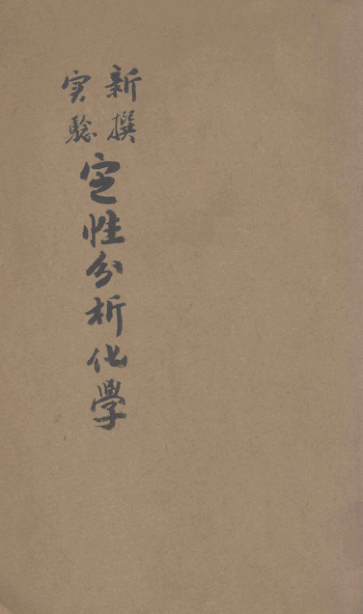 新撰
実験
定性分析化學